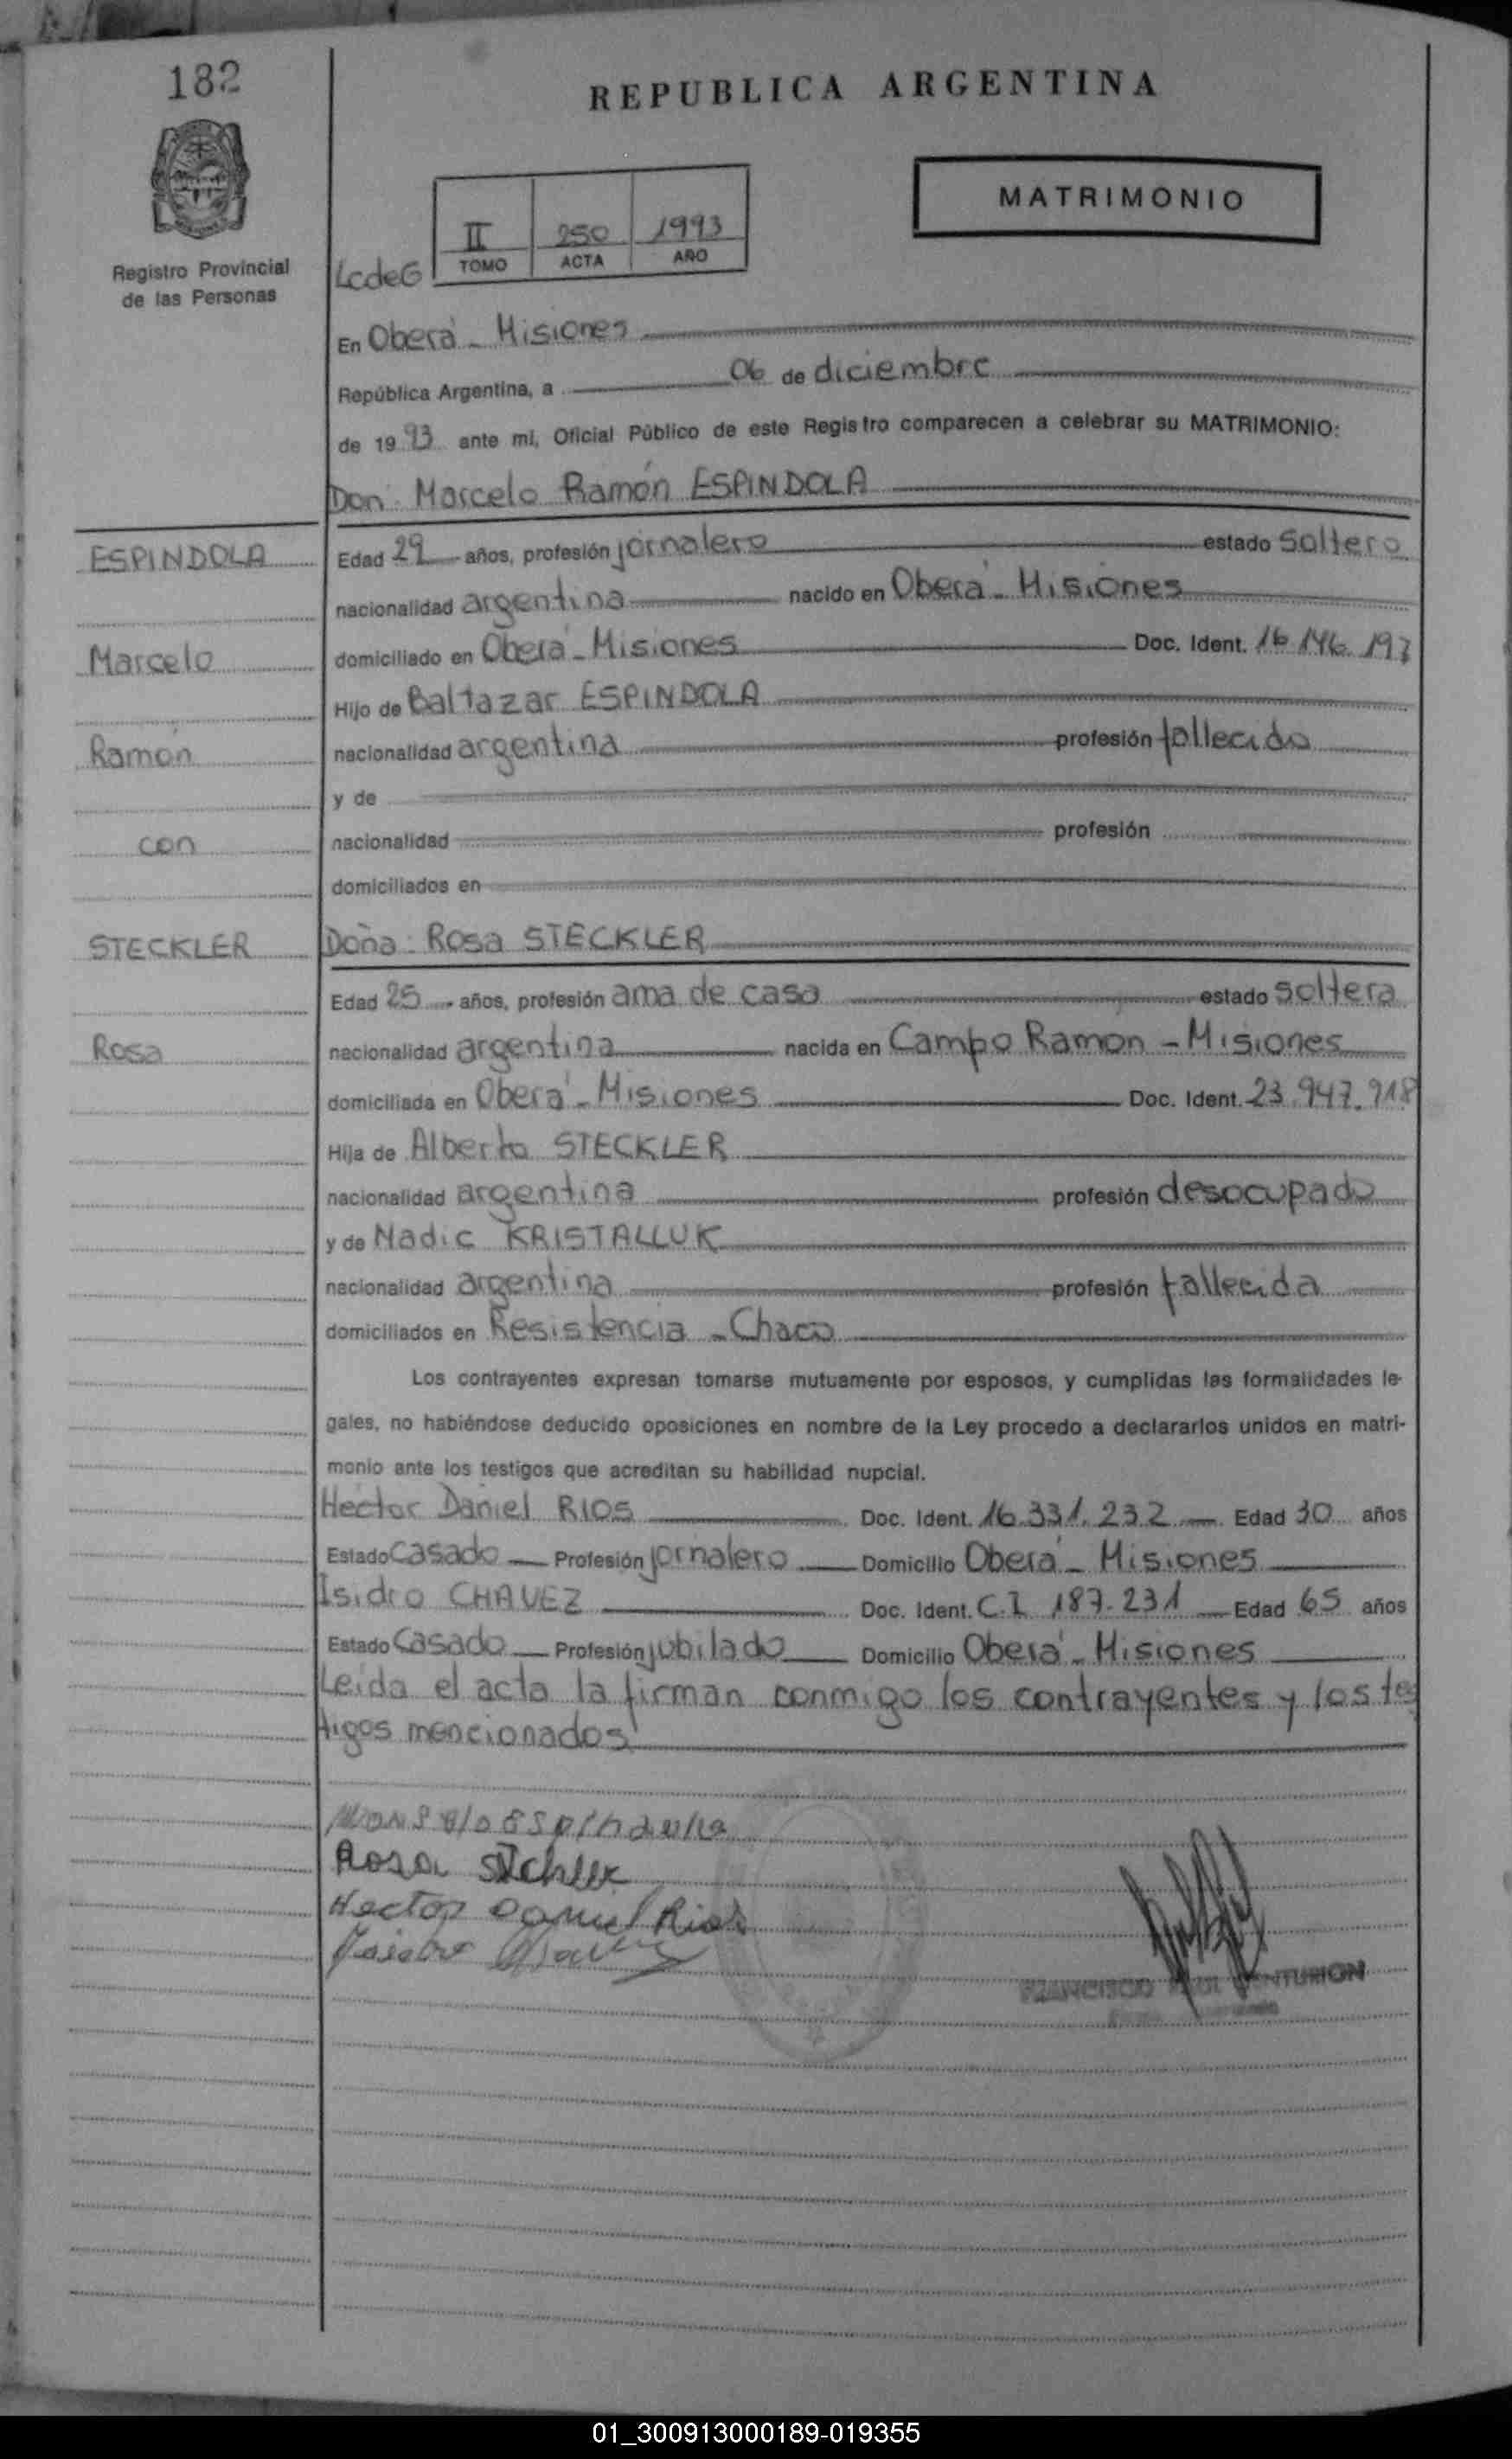 182
REPUBLICA ARGENTINA
MATRIMONIO
II 250 1993
TOMO ACTA AÑO
Registro Provincial
de las Personas
LcdeG
En Oberá - Misiones
República Argentina, a 06 de diciembre
de 1993 ante mi, Oficial Público de este Registro comparecen a celebrar su MATRIMONIO:
Don: Marcelo Ramón ESPINDOLA
ESPINDOLA
Edad 29 años, profesión jornalero estado soltero
nacionalidad argentina nacido en Oberá - Misiones
Marcelo
domiciliado en Oberá - Misiones Doc. Ident. 16.146.197
Hijo de Baltazar ESPINDOLA
Ramón
nacionalidad argentina profesión fallecido
y de
con
nacionalidad profesión
domiciliados en
STECKLER
Doña: Rosa STECKLER
Edad 25 años, profesión ama de casa estado soltera
Rosa
nacionalidad argentina nacida en Campo Ramon - Misiones
domiciliada en Oberá - Misiones Doc. Ident. 23.947.918
Hija de Alberto STECKLER
nacionalidad argentina profesión desocupado
y de Nadic KRISTALLUK
nacionalidad argentina profesión fallecida
domiciliados en Resistencia - Chaco
Los contrayentes expresan tomarse mutuamente por esposos, y cumplidas las formalidades le-
gales, no habiéndose deducido oposiciones en nombre de la Ley procedo a declararlos unidos en matri-
monio ante los testigos que acreditan su habilidad nupcial.
Hector Daniel RIOS Doc. Ident. 16.331.232 Edad 30 años
Estado casado Profesión jornalero Domicilio Oberá - Misiones
Isidro CHAVEZ Doc. Ident. C.I 187.231 Edad 65 años
Estado casado Profesión jubilado Domicilio Oberá - Misiones
Leída el acta la firman conmigo los contrayentes y los tes
tigos mencionados
Rosa
Hector Daniel Rios
Isidro Chavez
FRANCISCO CENTURION
01_300913000189-019355